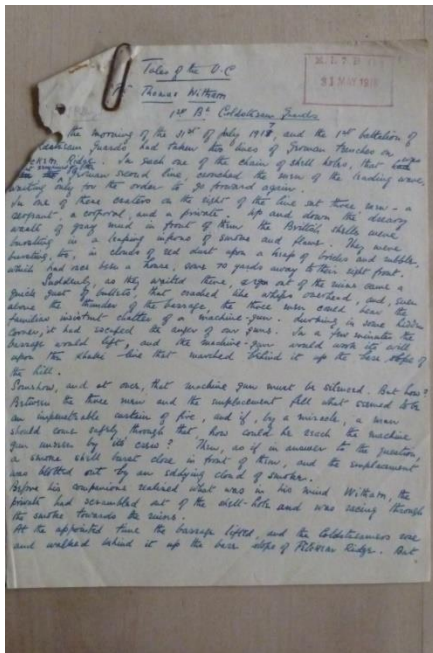 M.I.7.B
31 MAY 1918
Tales of the V.C
Thomas Witham
1st Bn Coldstream Guards
the morning of the 31st of July 1917, and the 1st battalion of
Coldstream Guards had taken two lines of German trenches on
Ridge. In each one of the chain of shell holes, that was
German second line, crouched the men of the leading wave,
waiting only for the order to go forward again.
In one of these craters on the right of the line sat three men - a
sergeant, a corporal, and a private. Up and down the dreary
waste of grey mud in front of them the British shells were
bursting in a leaping inferno of smoke and flame. They were
bursting, too, in clouds of red dust upon a heap of bricks and rubble
which had once been a house, some 70 yards away to their right front.
Suddenly, as they waited there, out of the ruins came a
quick gust of bullets, that cracked like whips overhead, and, even
above the thunder of the barrage the three men could hear the
familiar insistent chatter of a machine-gun. Lurking in some hidden
corner, it had escaped the anger of our guns. In a few minutes the
barrage would lift, and the machine-gun would work its will
upon the khaki line that marched behind it up the bare slope of
the hill.
Somehow, and at once, that machine gun must be silenced. But how?
Between the three men and the emplacement fell what seemed to be
an impenetrable curtain of fire, and if, by a miracle, a man
should come safely through that, how could he reach the machine
gun unseen by its crew? Then, as if in answer to the question,
a smoke shell burst close in front of them, and the emplacement
was blotted out by an eddying cloud of smoke.
Before his companions realised what was in his mind Witham, the
private had scrambled out of the shell-hole and was racing through
the smoke towards the ruins.
At the appointed time the barrage lifted, and the Coldstreamers rose
and walked behind it up the bare slope of Pilckem Ridge. But